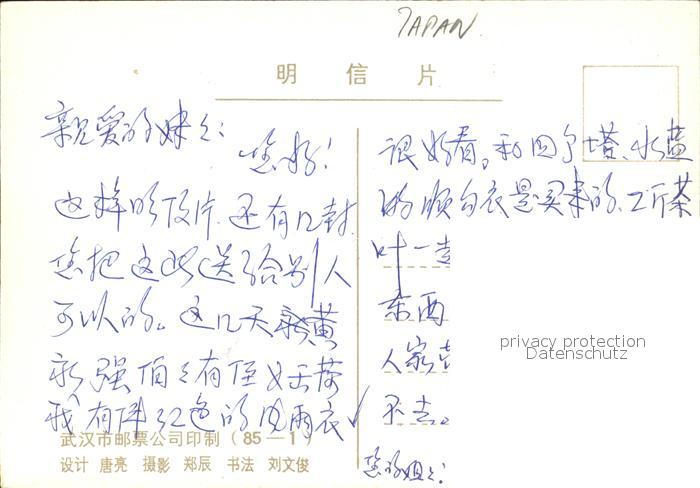 JAPAN
明信片
亲爱的妹々:
您好!
这样的 片.还有几封
您把这些送给别人
可以的。这几天 黄
强伯々有侄女 荷
我有件红色的风雨衣
很好看。和 塔、水蓝
的 衣是买来的.2斤茶
叶一
东西
人家
不去。
您的姐々:
privacy protection
Datenschutz
武汉市邮票公司印制(85—1)
设计 唐亮 摄影 郑辰 书法 刘文俊